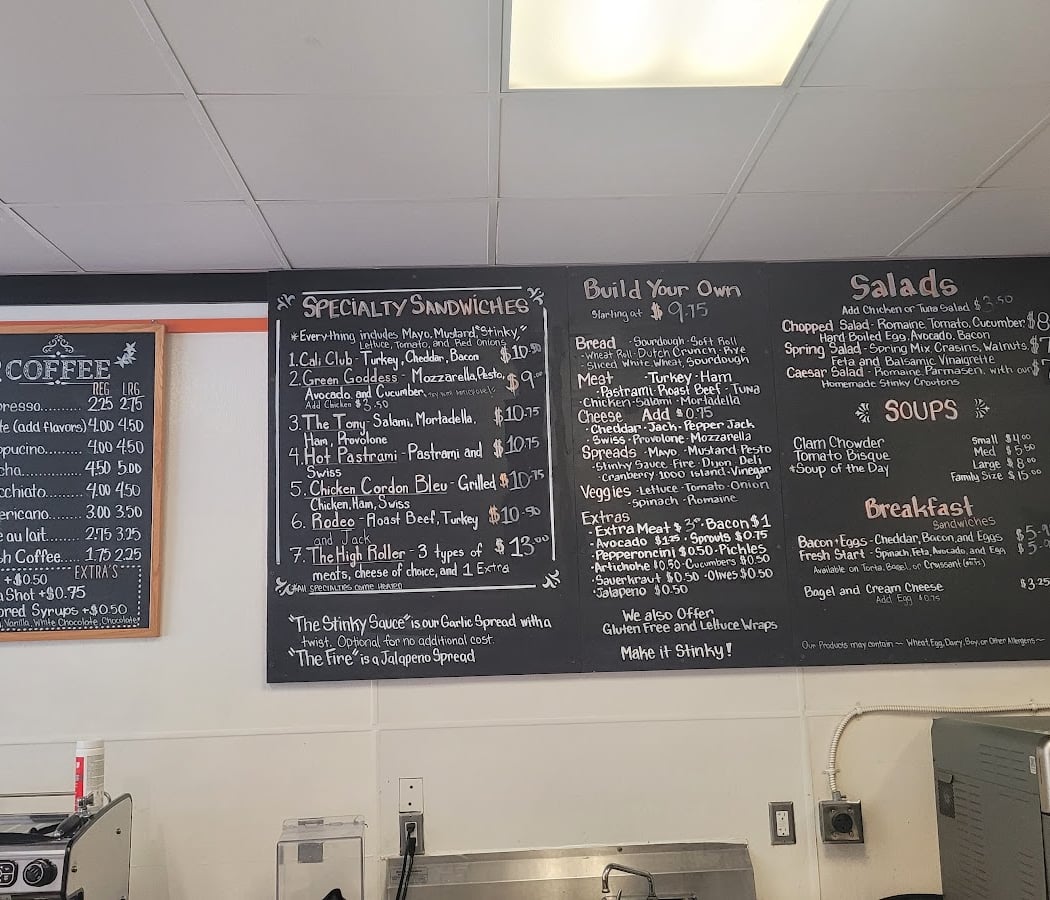 COFFEE
REG LRG
presso......... 2.25 2.75
te (add flavors) 4.00 4.50
ppucino........ 4.00 4.50
cha............ 4.50 5.00
cchiato........ 4.00 4.50
ericano........ 3.00 3.50
é au lait....... 2.75 3.25
sh Coffee...... 1.75 2.25
EXTRA'S
+$0.50
Shot +$0.75
ored Syrups +$0.50
Vanilla, White Chocolate, Chocolate
SPECIALTY SANDWICHES
*Everything includes Mayo, Mustard, "Stinky,"
Lettuce, Tomato, and Red Onions
1. Cali Club - Turkey, Cheddar, Bacon $10.50
2. Green Goddess - Mozzarella, Pesto, $9
Avocado, and Cucumber
Add Chicken $3.50
3. The Tony - Salami, Mortadella, $10.75
Ham, Provolone
4. Hot Pastrami - Pastrami and $10.75
Swiss
5. Chicken Cordon Bleu - Grilled $10.75
Chicken, Ham, Swiss
6. Rodeo - Roast Beef, Turkey $10.50
and Jack
7. The High Roller - 3 types of $13.00
meats, cheese of choice, and 1 Extra
*ALL SPECIALTIES COME HEATED
"The Stinky Sauce" is our Garlic Spread with a
twist. Optional for no additional cost.
"The Fire" is a Jalapeno Spread
Build Your Own
Starting at $9.75
Bread - Sourdough - Soft Roll
- Wheat Roll - Dutch Crunch - Rye
- Sliced White, Wheat, Sourdough
Meat - Turkey - Ham
- Pastrami - Roast Beef - Tuna
- Chicken - Salami - Mortadella
Cheese Add $0.75
- Cheddar - Jack - Pepper Jack
- Swiss - Provolone - Mozzarella
Spreads - Mayo - Mustard - Pesto
- Stinky Sauce - Fire - Dijon, Deli
- Cranberry - 1000 Island - Vinegar
Veggies - Lettuce - Tomato - Onion
- Spinach - Romaine
Extras
- Extra Meat $3 - Bacon $1
- Avocado $1.25 - Sprouts $0.75
- Pepperoncini $0.50 - Pickles
- Artichoke $0.50 - Cucumbers $0.50
- Sauerkraut $0.50 - Olives $0.50
- Jalapeno $0.50
We also Offer
Gluten Free and Lettuce Wraps
Make it Stinky!
Salads
Add Chicken or Tuna Salad $3.50
Chopped Salad - Romaine, Tomato, Cucumber $8
Hard Boiled Egg, Avocado, Bacon
Spring Salad - Spring Mix, Crasins, Walnuts, $7
Feta and Balsamic Vinaigrette
Caesar Salad - Romaine, Parmasen, with our $7
Homemade Stinky Croutons
SOUPS
Clam Chowder Small $4.00
Tomato Bisque Med $5.50
*Soup of the Day Large $8.00
Family Size $15.00
Breakfast
Sandwiches
Bacon + Eggs - Cheddar, Bacon, and Eggs $5
Fresh Start - Spinach, Feta, Avocado, and Egg $5
Available on Torta, Bagel, or Crussant
Bagel and Cream Cheese $3.25
Add Egg $0.75
Our Products may contain - Wheat, Egg, Dairy, Soy, or Other Allergens -